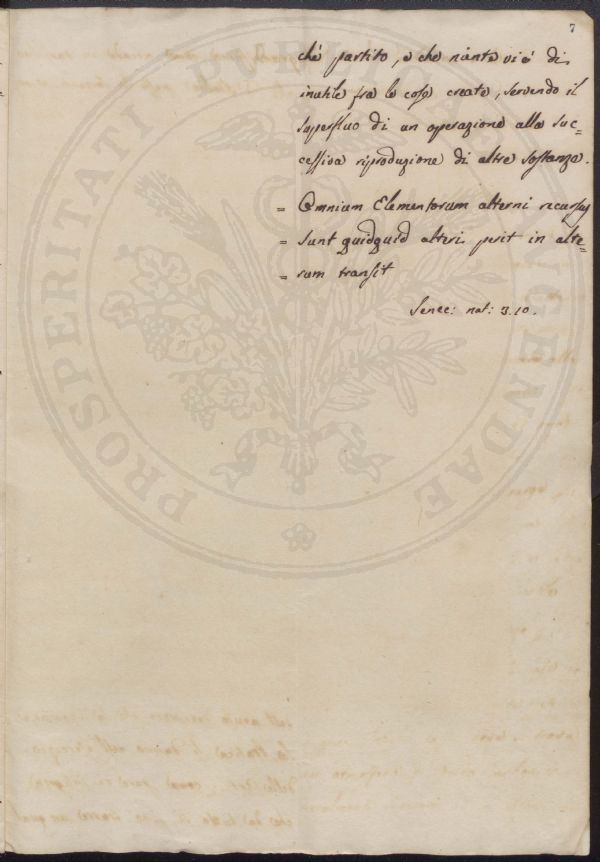 7
ché partito, e che niente vi è di
inutile fra le cose create, servendo il
superfluo di un operazione alla suc=
cessiva riproduzione di altre sostanze.
= Omnium Elementorum alterni recursus
= sunt quidquid alteri perit in alte=
= rum transit
Senec: nat: 3.10.
PROSPERITATI PUBLICAE AUGENDAE